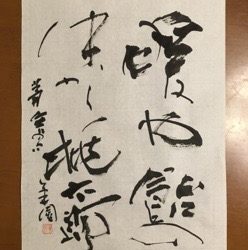 暖や飴の
中から桃太郎
茅舎句